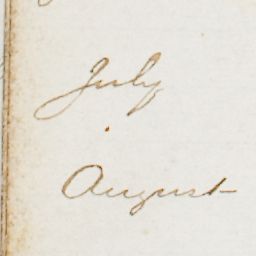 July
August